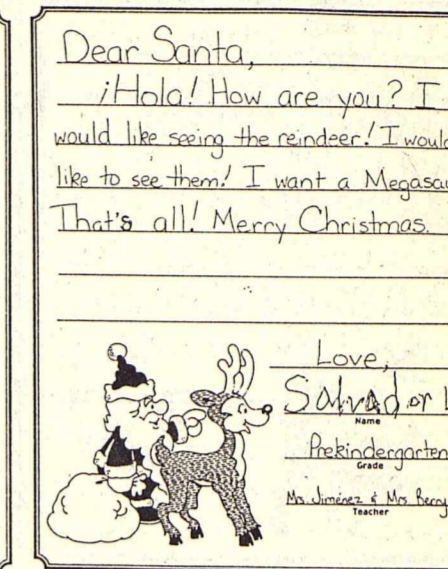 Dear Santa,
¡Hola! How are you? I
would like seeing the reindeer! I would
like to see them! I want a Megasau
That's all! Merry Christmas.
Love,
Salvador
Name
Prekindergarten
Grade
Mrs. Jiménez & Mrs. Berry
Teacher